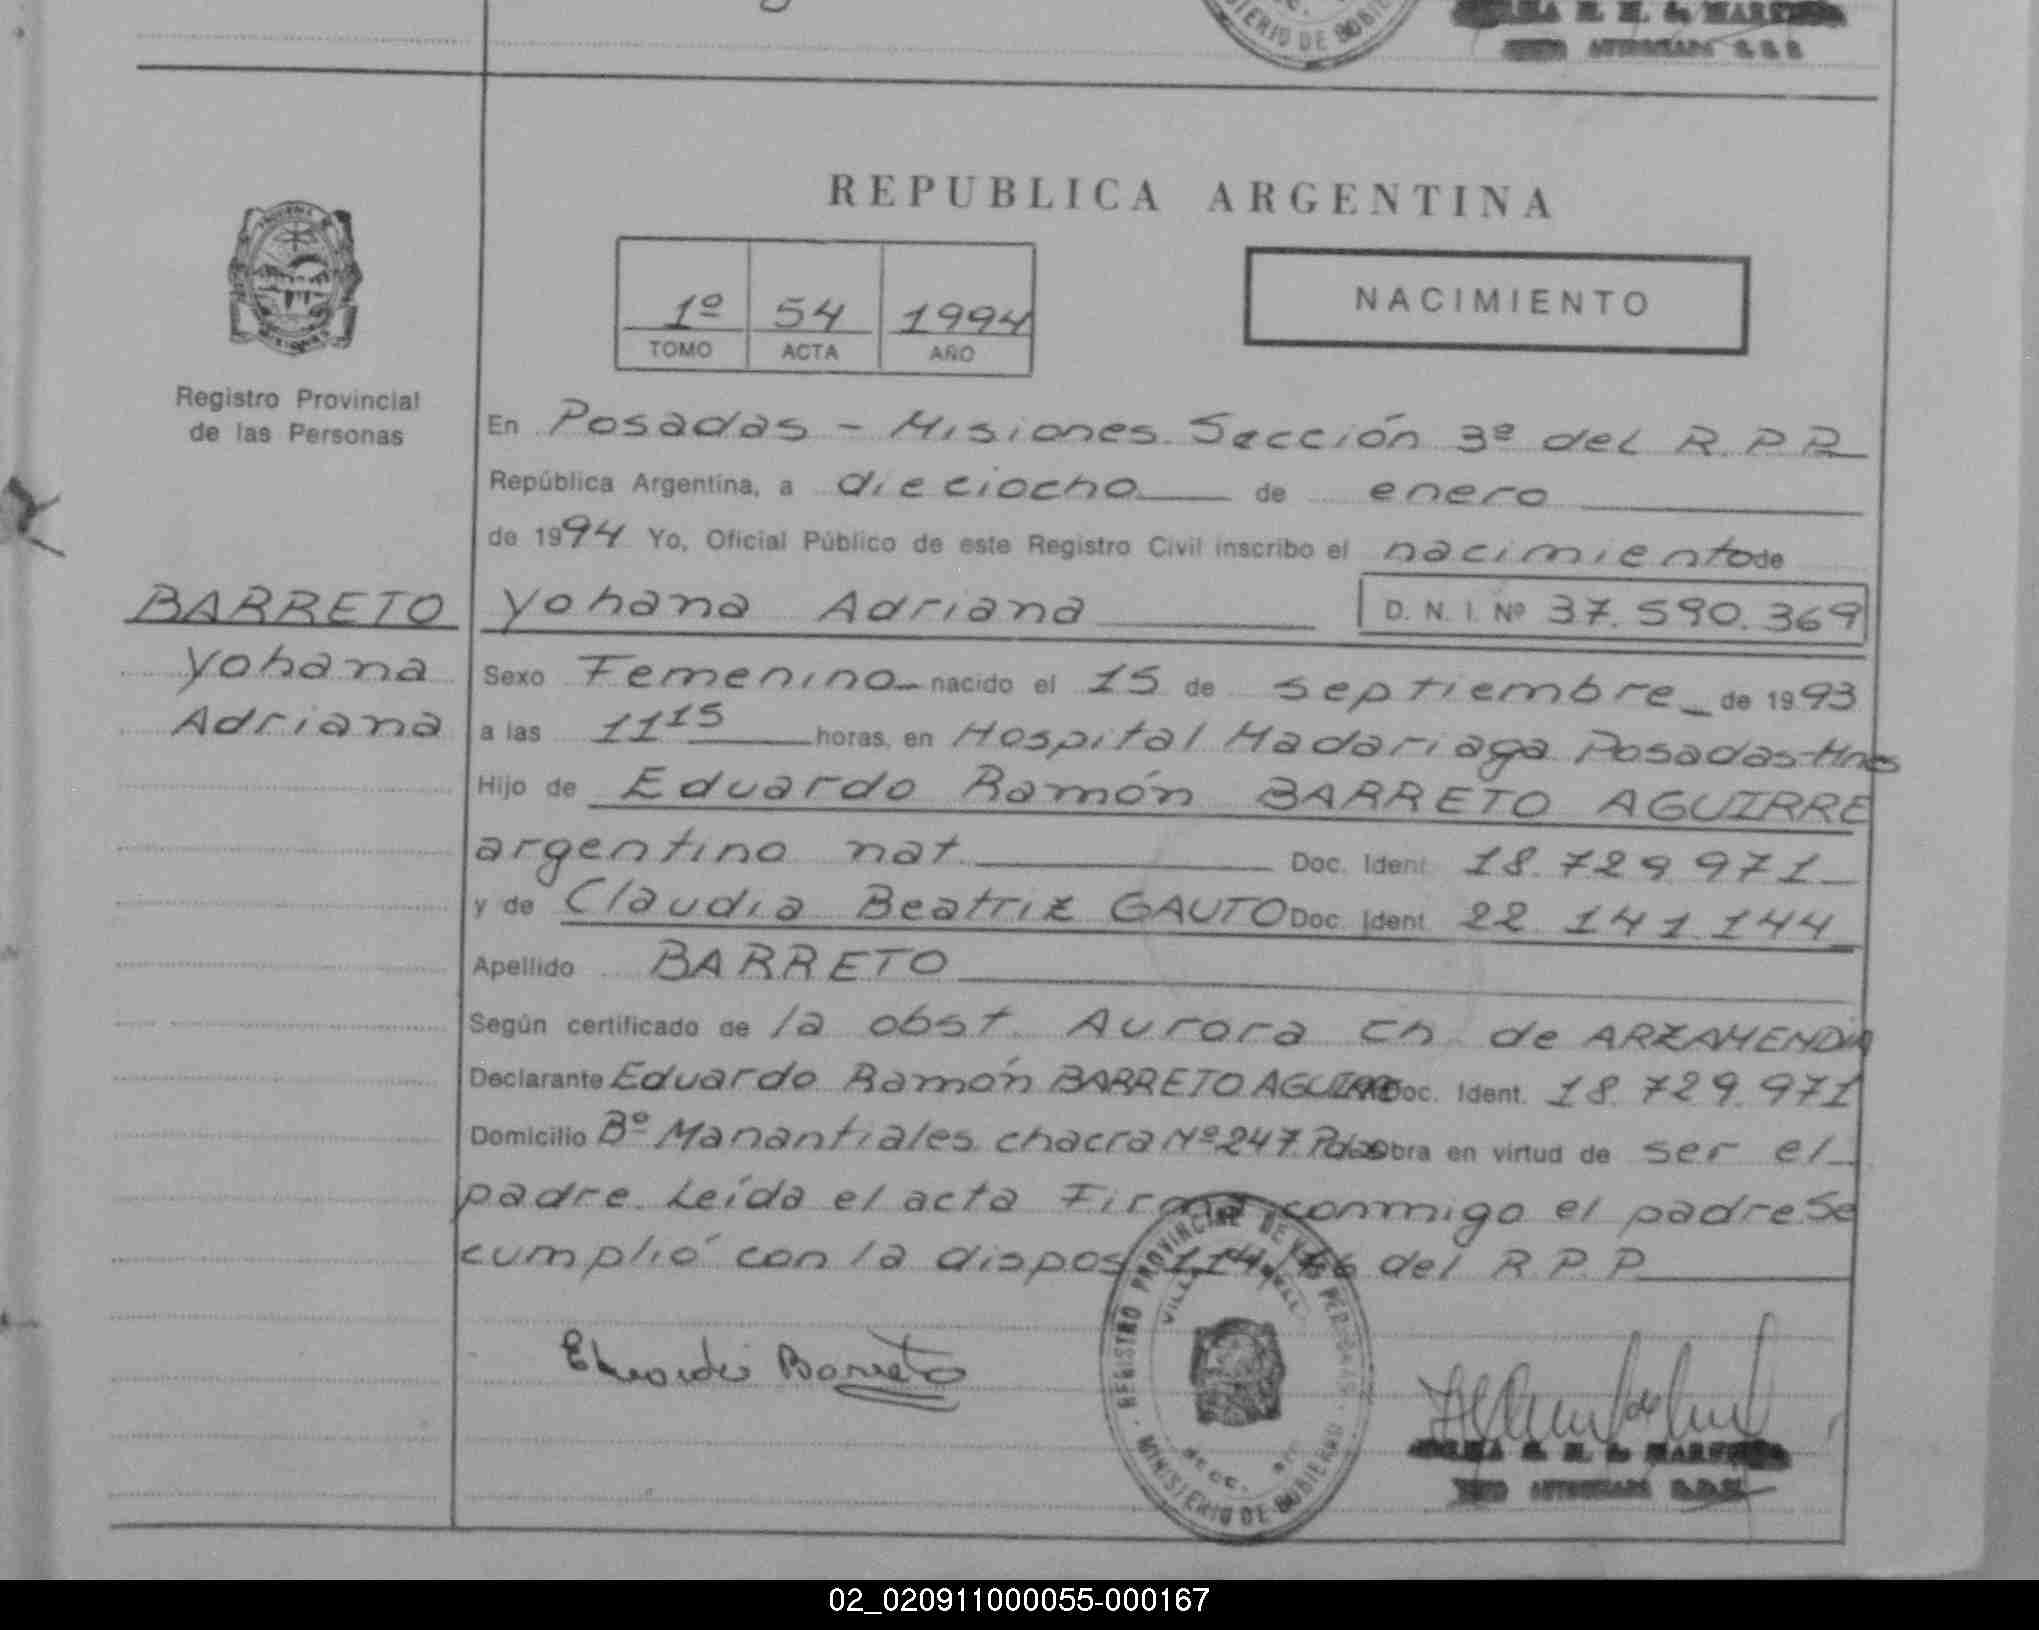 REPUBLICA ARGENTINA
1º 54 1994
TOMO ACTA AÑO
NACIMIENTO
Registro Provincial
de las Personas
En Posadas - Misiones Sección 3ª del R.P.P.
República Argentina, a dieciocho de enero
de 1994 Yo, Oficial Público de este Registro Civil inscribo el nacimiento de
BARRETO
Yohana
Adriana
Yohana Adriana D.N.I. Nº 37.590.369
Sexo Femenino nacido el 15 de septiembre de 1993
a las 11 15 horas, en Hospital Madariaga Posadas-Mnes
Hijo de Eduardo Ramón BARRETO AGUIRRE
argentino nat. Doc. Ident. 18.729.971
y de Claudia Beatriz GAUTO Doc. Ident. 22.141.144
Apellido BARRETO
Según certificado de la obst. Aurora Ch. de ARZAMENDIA
Declarante Eduardo Ramón BARRETO AGUIRRE Doc. Ident. 18.729.971
Domicilio Bº Manantiales chacra Nº 247 Pdas Obra en virtud de ser el
padre. Leída el acta Firma conmigo el padre. Se
cumplió con la dispos. del R.P.P.
Eduardo Barreto
REGISTRO PROVINCIAL DE LAS PERSONAS
MINISTERIO DE GOBIERNO
02_020911000055-000167